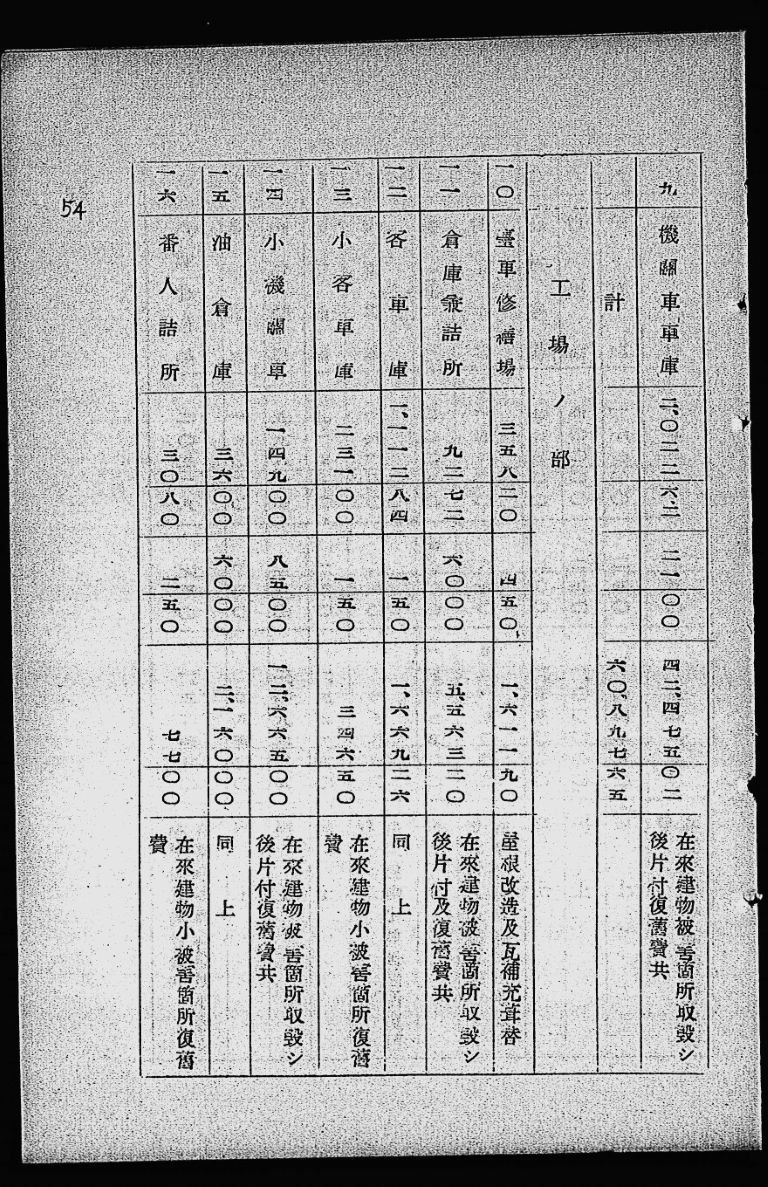 九 機關車車庫 二、〇二二六二 二一〇〇 四二、四七五〇二 在來建物被害箇所取毀シ
後片付復舊費共
計 六〇、八九七六五
工場ノ部
一〇 臺車修繕場 三五八二〇 四五〇 一、六一一九〇 屋根改造及瓦補充葺替
一一 倉庫兼詰所 九二七二 六〇〇〇 五、五六三二〇 在來建物被害箇所取毀シ
後片付及復舊費共
一二 客車庫 一、一一二八四 一五〇 一、六六九二六 同上
一三 小客車庫 二三一〇〇 一五〇 三四六五〇 在來建物小被害箇所復舊
費
一四 小機關車 一四九〇〇 八五〇〇 一二、六六五〇〇 在來建物被害箇所取毀シ
後片付復舊費共
一五 油倉庫 三六〇〇 六〇〇〇 二、一六〇〇〇 同上
一六 番人詰所 三〇八〇 二五〇 七七〇〇 在來建物小被害箇所復舊
費
54